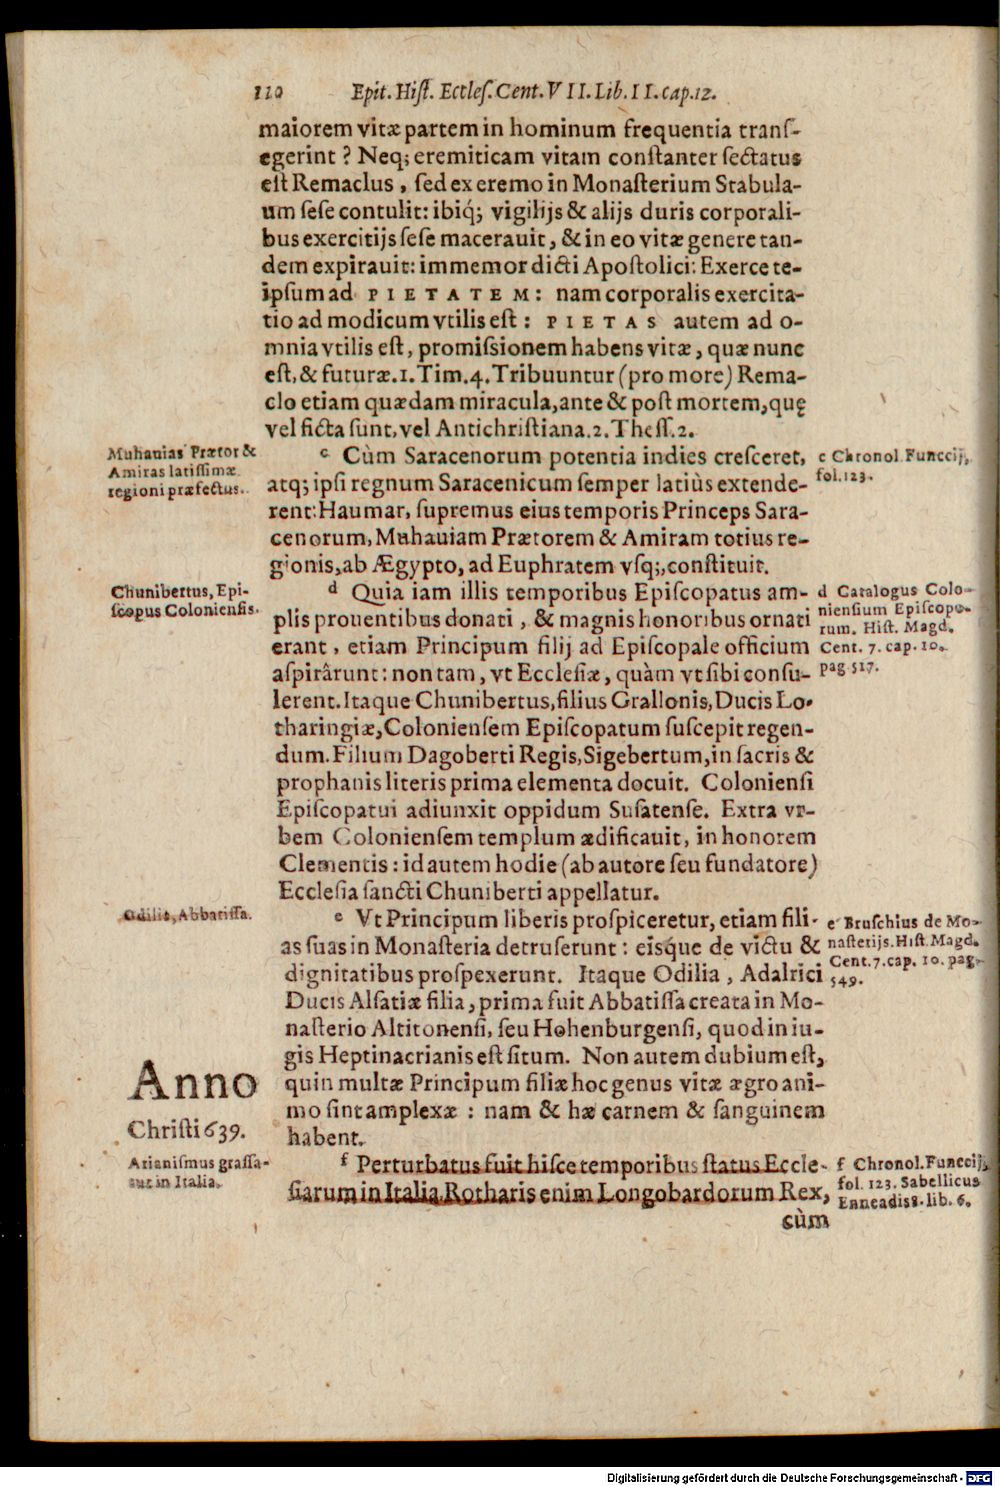 110 Epit. Hiſt. Eccleſ. Cent. VII. Lib. II. cap. 12.
maiorem vitæ partem in hominum frequentia tranſ-
egerint? Neq; eremiticam vitam conſtanter ſectatus
eſt Remaclus, ſed ex eremo in Monaſterium Stabula-
um ſeſe contulit: ibiq́; vigilijs & alijs duris corporali-
bus exercitijs ſeſe macerauit, & in eo vitæ genere tan-
dem expirauit: immemor dicti Apoſtolici: Exerce te-
ipſum ad PIETATEM: nam corporalis exercita-
tio ad modicum vtilis eſt: PIETAS autem ad o-
mnia vtilis eſt, promiſsionem habens vitæ, quæ nunc
eſt, & futuræ. 1. Tim. 4. Tribuuntur (pro more) Rema-
clo etiam quædam miracula, ante & poſt mortem, quę
vel ficta ſunt, vel Antichriſtiana. 2. Theſſ. 2.
Muhauias Prætor &
Amiras latiſsimæ
regioni præfectus.
c Cùm Saracenorum potentia indies creſceret,
atq; ipſi regnum Saracenicum ſemper latiùs extende-
rent: Haumar, ſupremus eius temporis Princeps Sara-
cenorum, Muhauiam Prætorem & Amiram totius re-
gionis, ab Ægypto, ad Euphratem vſq;, conſtituit.
c Chronol. Funccij,
fol. 123.
Chunibertus, Epi-
ſcopus Colonienſis.
d Quia iam illis temporibus Epiſcopatus am-
plis prouentibus donati, & magnis honoribus ornati
erant, etiam Principum filij ad Epiſcopale officium
aſpirârunt: non tam, vt Eccleſiæ, quàm vt ſibi conſu-
lerent. Itaque Chunibertus, filius Grallonis, Ducis Lo-
tharingiæ, Colonienſem Epiſcopatum ſuſcepit regen-
dum. Filium Dagoberti Regis, Sigebertum, in ſacris &
prophanis literis prima elementa docuit. Colonienſi
Epiſcopatui adiunxit oppidum Suſatenſe. Extra vr-
bem Colonienſem templum ædificauit, in honorem
Clementis: id autem hodie (ab autore ſeu fundatore)
Eccleſia ſancti Chuniberti appellatur.
d Catalogus Colo-
nienſium Epiſcopo-
rum. Hiſt. Magd.
Cent. 7. cap. 10.
pag 517.
Odilia, Abbatiſſa.
e Vt Principum liberis proſpiceretur, etiam fili-
as ſuas in Monaſteria detruſerunt: eisque de victu &
dignitatibus proſpexerunt. Itaque Odilia, Adalrici
Ducis Alſatiæ filia, prima fuit Abbatiſſa creata in Mo-
naſterio Altitonenſi, ſeu Hohenburgenſi, quod in iu-
gis Heptinacrianis eſt ſitum. Non autem dubium eſt,
quin multæ Principum filiæ hoc genus vitæ ægro ani-
mo ſint amplexæ: nam & hæ carnem & ſanguinem
habent.
e Bruſchius de Mo-
naſterijs. Hiſt. Magd.
Cent. 7. cap. 10. pag.
549.
Anno
Chriſti 639.
Arianiſmus graſſa-
tur in Italia.
f Perturbatus fuit hiſce temporibus ſtatus Eccle-
ſiarum in Italia. Rotharis enim Longobardorum Rex,
cùm
f Chronol. Funccij,
fol. 123. Sabellicus
Enneadis 8. lib. 6.
Digitalisierung gefördert durch die Deutsche Forschungsgemeinschaft - DFG